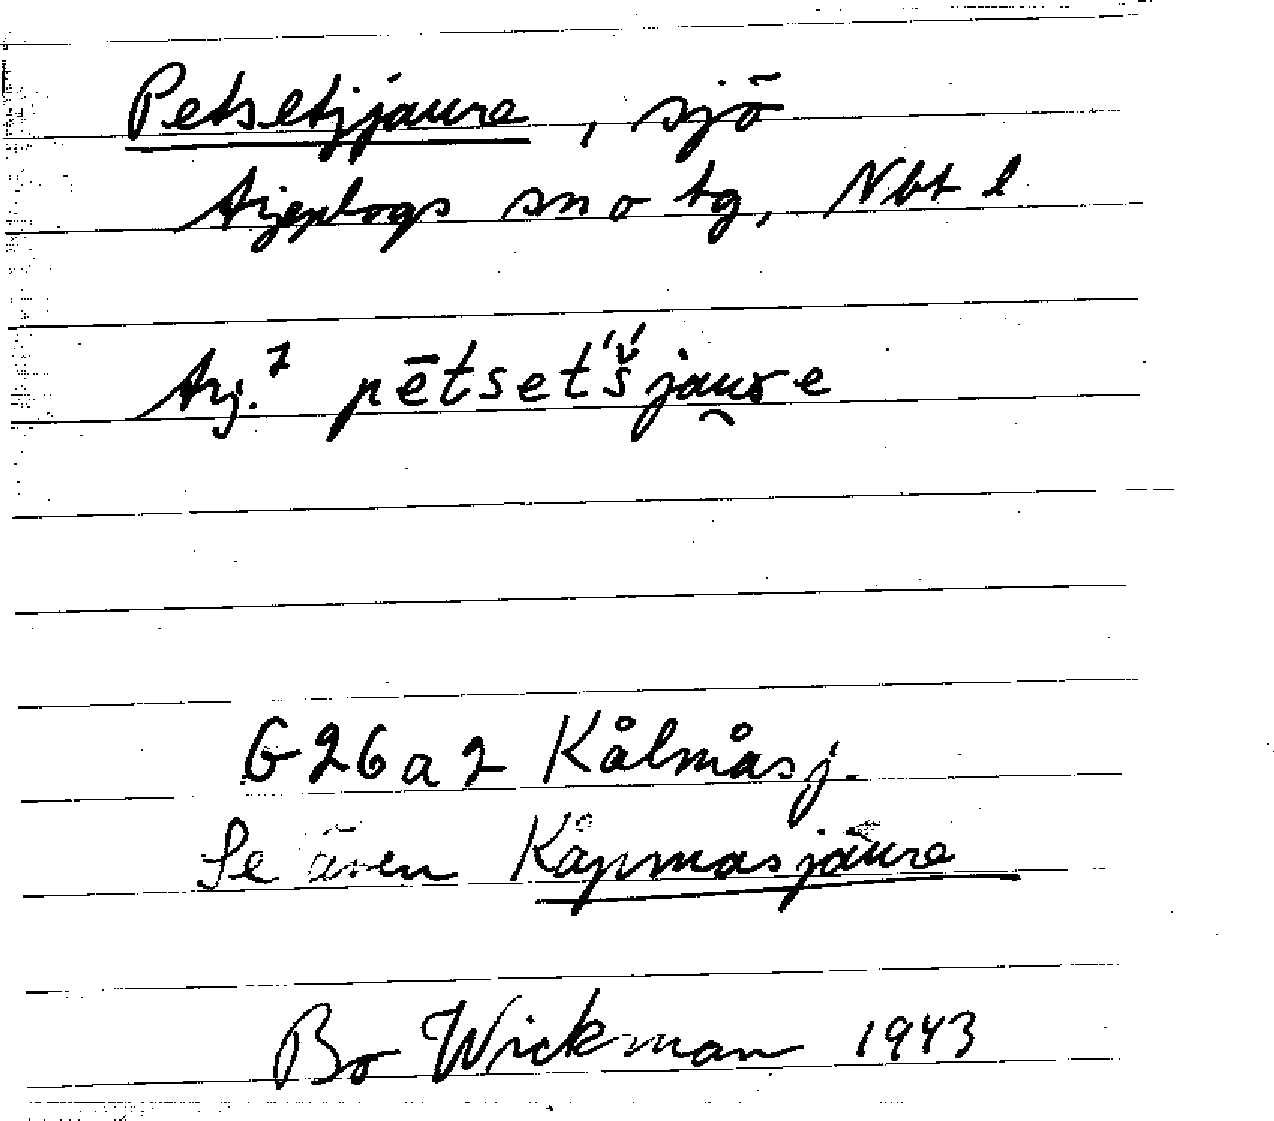 Petsetjjaure, sjö
Arjeplogs sn o tg, Nbt l
Arj.² pētset́š́jaure
G26a2 Kålmåsj.
Se även Kåpmasjaure
Bo Wickman 1943